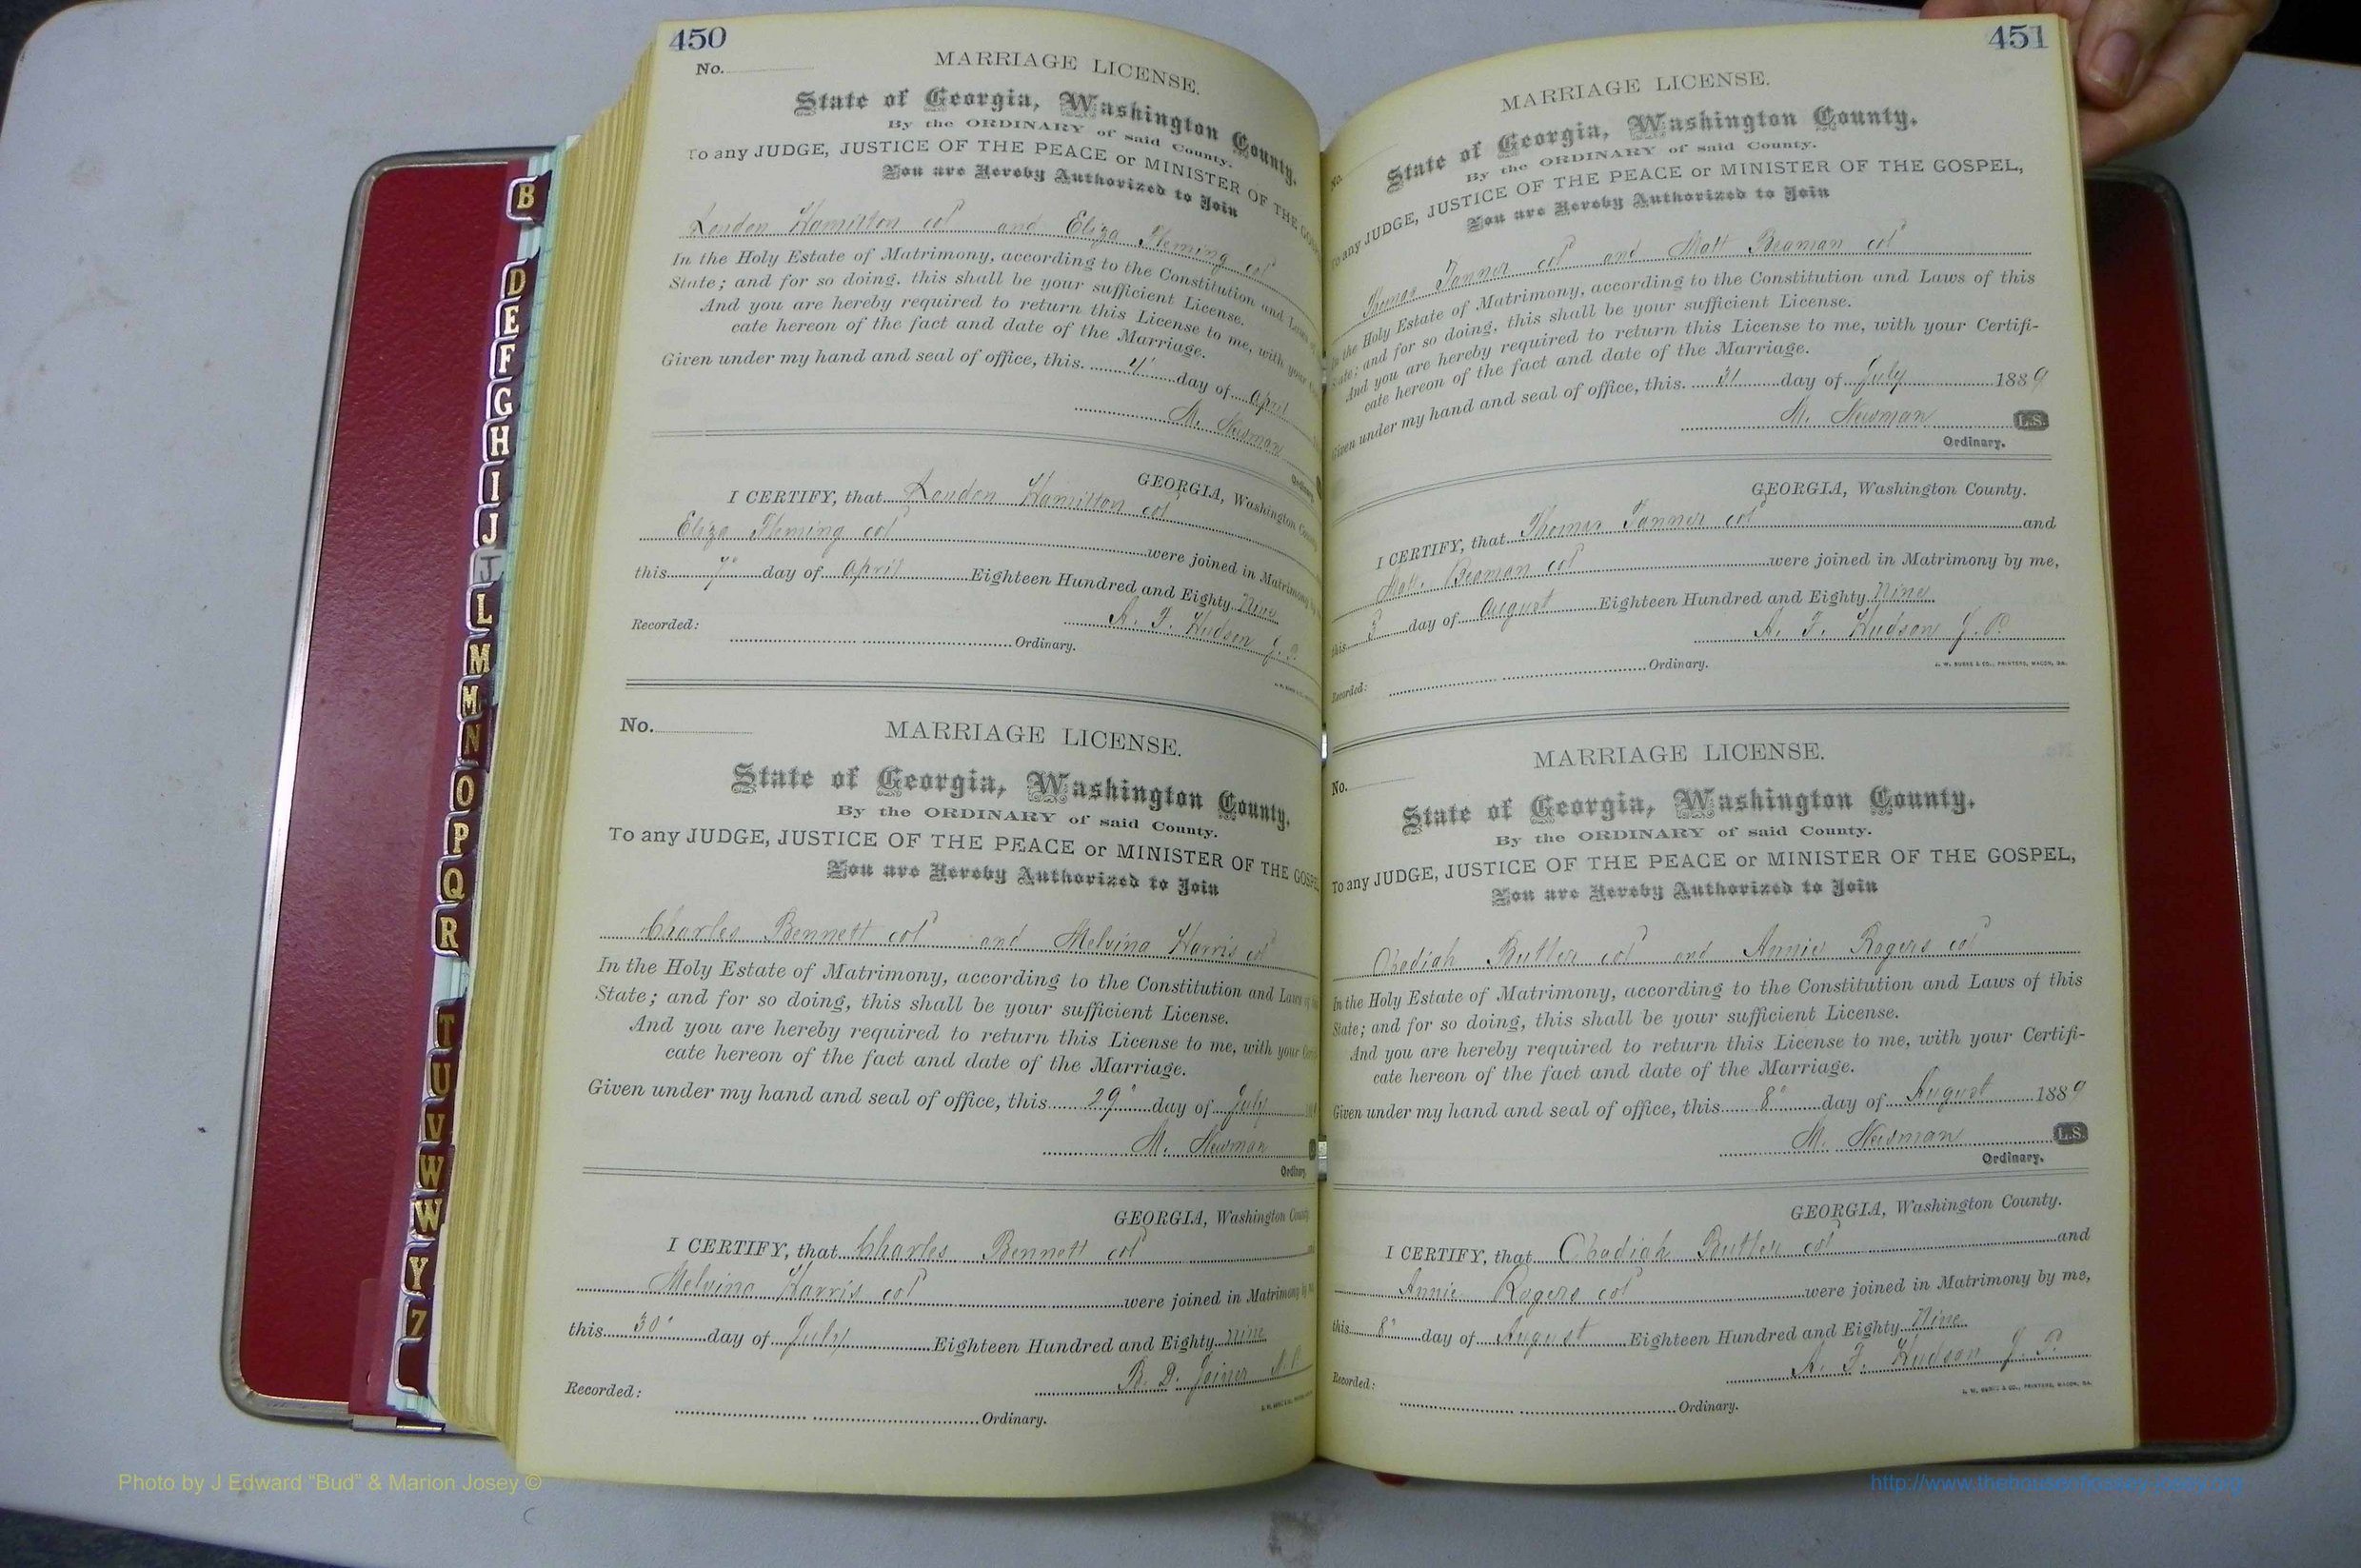 450
No.
MARRIAGE LICENSE.
State of Georgia, Washington County.
By the ORDINARY of said County.
To any JUDGE, JUSTICE OF THE PEACE or MINISTER OF THE GOSP
You are Hereby Authorized to Join
London Hamilton col and Eliza Fleming col
In the Holy Estate of Matrimony, according to the Constitution and Laws of
State; and for so doing, this shall be your sufficient License.
And you are hereby required to return this License to me, with your
cate hereon of the fact and date of the Marriage.
Given under my hand and seal of office, this 4" day of April
M. Newman
Ordinary
GEORGIA, Washington County
I CERTIFY, that London Hamilton col
Eliza Fleming col were joined in Matrimony
this 7" day of April Eighteen Hundred and Eighty Nine
A. F. Hudson J. P.
Recorded:
Ordinary.
No.
MARRIAGE LICENSE.
State of Georgia, Washington County.
By the ORDINARY of said County.
To any JUDGE, JUSTICE OF THE PEACE or MINISTER OF THE GOSPE
You are Hereby Authorized to Join
Charles Bennett col and Melvina Harris col
In the Holy Estate of Matrimony, according to the Constitution and Laws of
State; and for so doing, this shall be your sufficient License.
And you are hereby required to return this License to me, with your Certi
cate hereon of the fact and date of the Marriage.
Given under my hand and seal of office, this 29" day of July
M. Newman
Ordinary
GEORGIA, Washington County
I CERTIFY, that Charles Bennett col
Melvina Harris col were joined in Matrimony by
this 30" day of July Eighteen Hundred and Eighty nine
B. D. Joiner N.P.
Recorded:
Ordinary.
451
No.
MARRIAGE LICENSE.
State of Georgia, Washington County.
By the ORDINARY of said County.
To any JUDGE, JUSTICE OF THE PEACE or MINISTER OF THE GOSPEL,
You are Hereby Authorized to Join
Thomas Tanner col and Matt Beaman col
In the Holy Estate of Matrimony, according to the Constitution and Laws of this
State; and for so doing, this shall be your sufficient License.
And you are hereby required to return this License to me, with your Certifi-
cate hereon of the fact and date of the Marriage.
Given under my hand and seal of office, this 31 day of July 1889
M. Newman L.S.
Ordinary.
GEORGIA, Washington County.
I CERTIFY, that Thomas Tanner col and
Matt. Beaman col were joined in Matrimony by me,
this 3 day of August Eighteen Hundred and Eighty Nine
A. F. Hudson J. P.
J. W. BURKE & CO., PRINTERS, MACON, GA.
Recorded:
Ordinary.
No.
MARRIAGE LICENSE.
State of Georgia, Washington County.
By the ORDINARY of said County.
To any JUDGE, JUSTICE OF THE PEACE or MINISTER OF THE GOSPEL,
You are Hereby Authorized to Join
Obadiah Butler col and Annie Rogers col
In the Holy Estate of Matrimony, according to the Constitution and Laws of this
State; and for so doing, this shall be your sufficient License.
And you are hereby required to return this License to me, with your Certifi-
cate hereon of the fact and date of the Marriage.
Given under my hand and seal of office, this 8" day of August 1889
M. Newman L.S.
Ordinary.
GEORGIA, Washington County.
I CERTIFY, that Obadiah Butler col and
Annie Rogers col were joined in Matrimony by me,
this 8" day of August Eighteen Hundred and Eighty Nine
A. F. Hudson J. P.
J. W. BURKE & CO., PRINTERS, MACON, GA.
Recorded:
Ordinary.
B
D
E
F
G
H
I
J
J
L
M
M
N
O
P
Q
R
T
U
V
W
W
Y
Z
Photo by J Edward “Bud” & Marion Josey ©